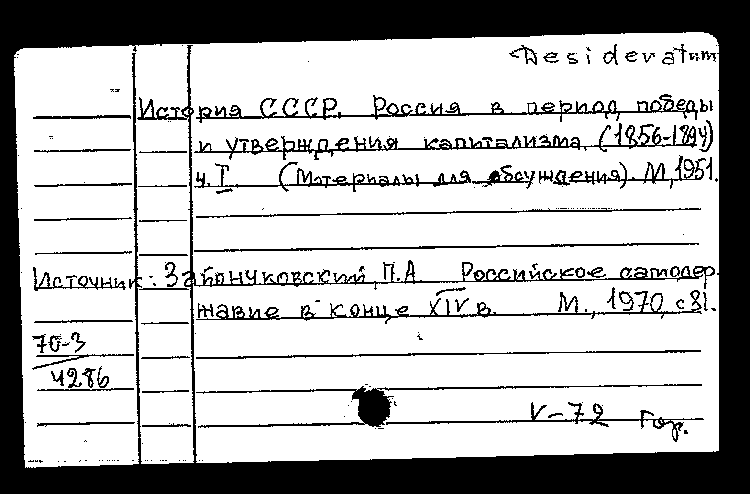 Desideratum
История СССР. Россия в период победы
и утверждения капитализма. (1856-1894)
ч. I (Материалы для обсуждения). М, 1951.
Источник: Зайончковский, П.А. Российское самодер
жавие в конце XIV в. М., 1970, с 81.
70-3
4286
V-72 Гор.